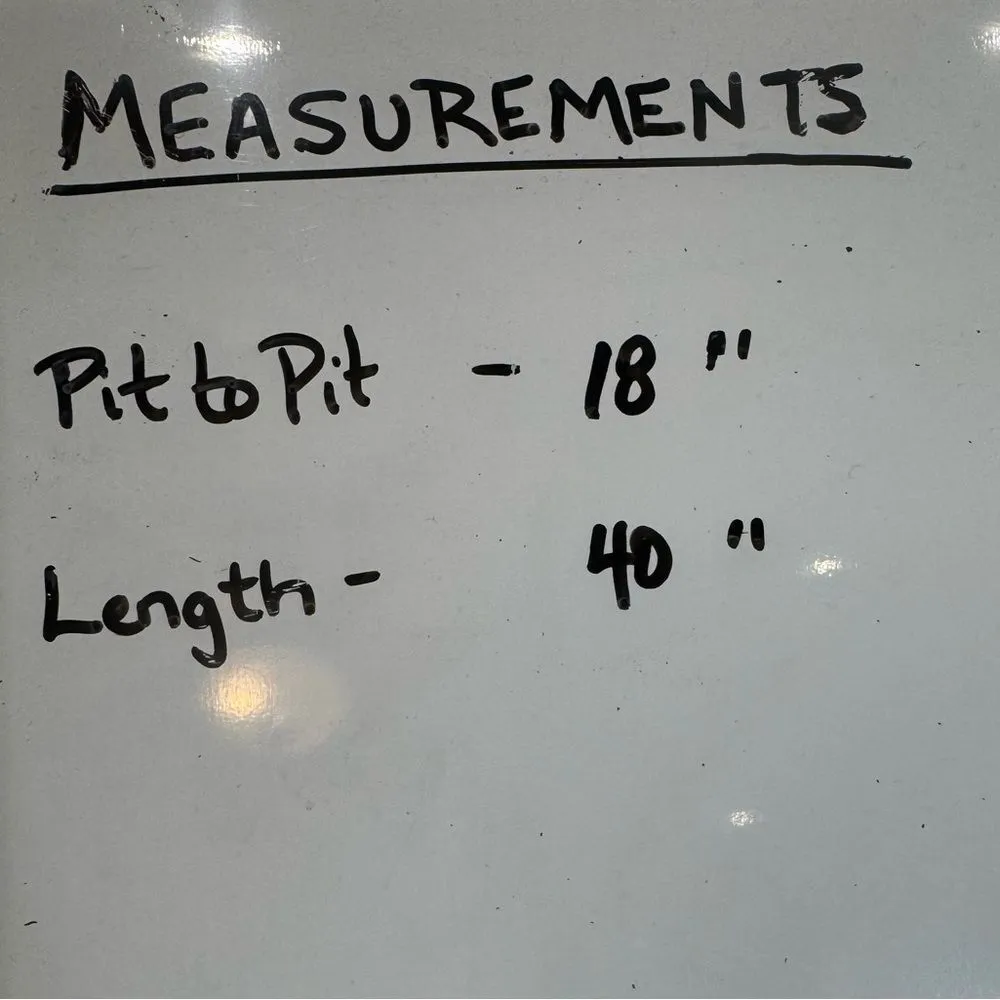 MEASUREMENTS
Pit to Pit - 18 "
Length - 40 "